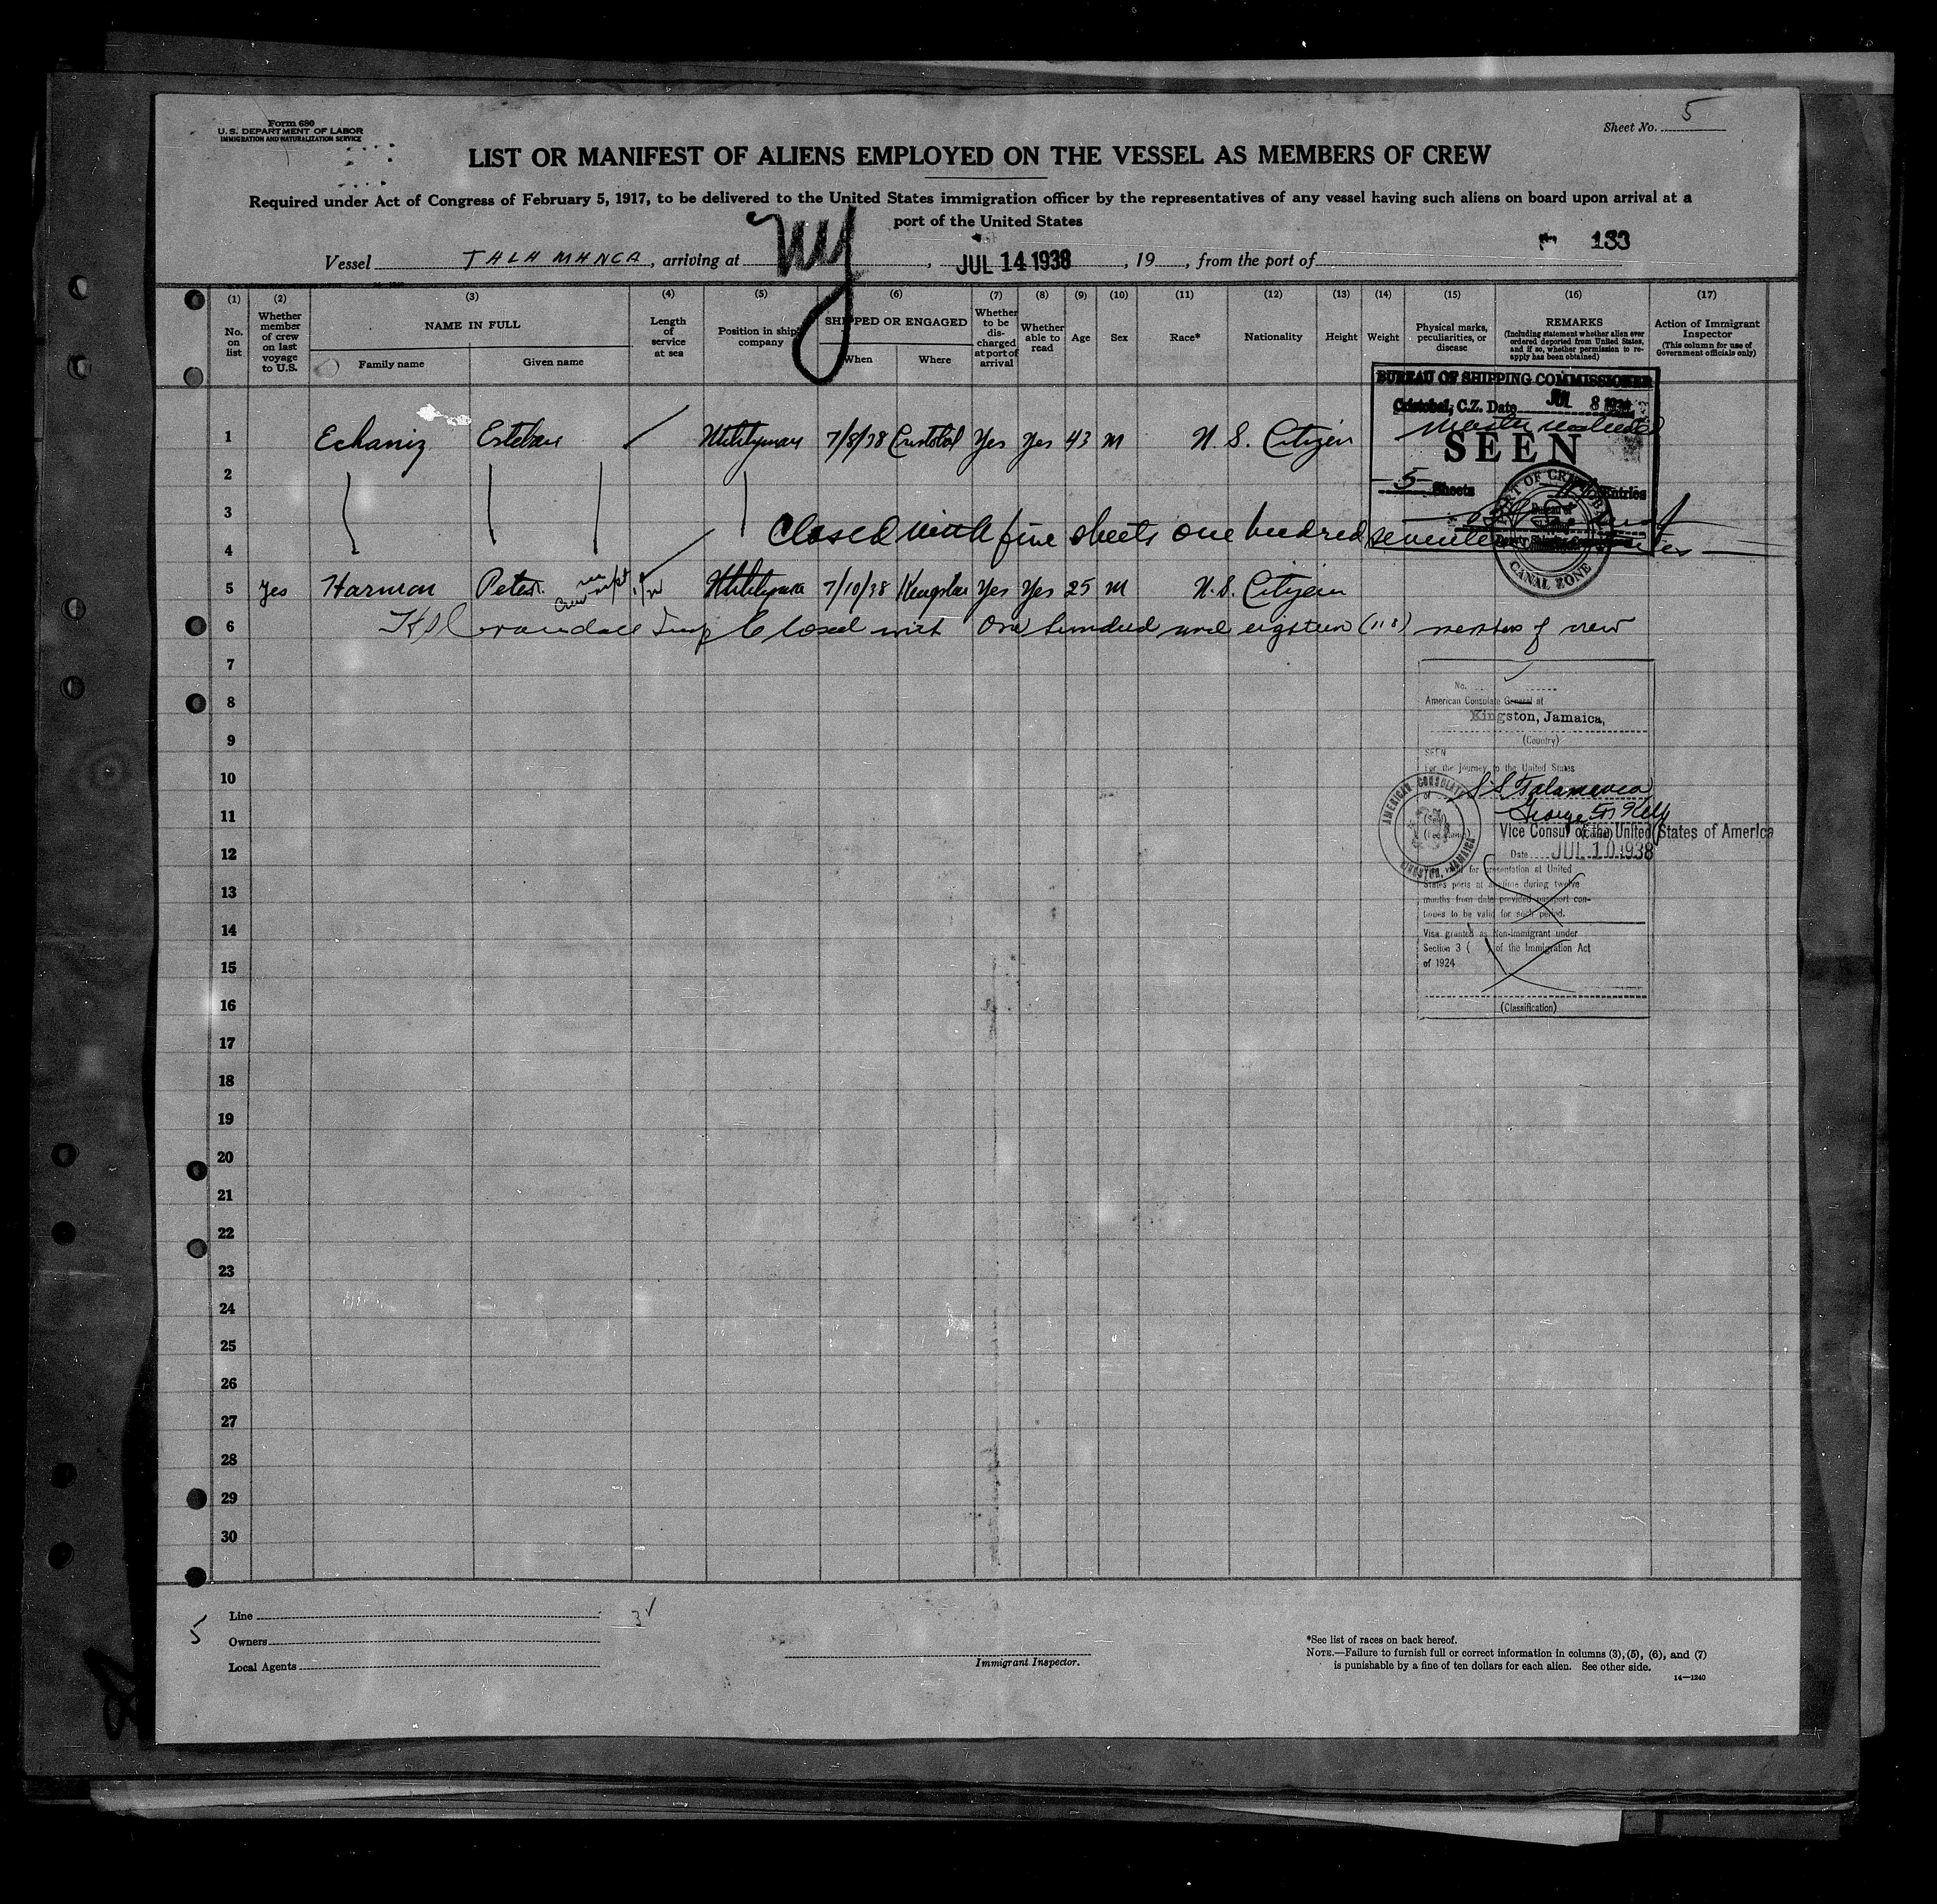 Form 680
U. S. DEPARTMENT OF LABOR
IMMIGRATION AND NATURALIZATION SERVICE
Sheet No. 5
LIST OR MANIFEST OF ALIENS EMPLOYED ON THE VESSEL AS MEMBERS OF CREW
Required under Act of Congress of February 5, 1917, to be delivered to the United States immigration officer by the representatives of any vessel having such aliens on board upon arrival at a
port of the United States
133
Vessel TALAMANCA, arriving at NY, JUL 14 1938, 19, from the port of
(1) (2) (3) (4) (5) (6) (7) (8) (9) (10) (11) (12) (13) (14) (15) (16) (17)
No. on list
Whether member of crew on last voyage to U.S.
NAME IN FULL
Family name
Given name
Length of service at sea
Position in ship's company
SHIPPED OR ENGAGED
When
Where
Whether to be discharged at port of arrival
Whether able to read
Age
Sex
Race*
Nationality
Height
Weight
Physical marks, peculiarities, or disease
REMARKS
(Including statement whether alien ever ordered deported from United States, and if so, whether permission to reapply has been obtained)
Action of Immigrant Inspector
(This column for use of Government officials only)
BUREAU OF SHIPPING COMMISSIONER
Cristobal, C.Z. Date JUL 8 1938
SEEN
5 Sheets Entries
PORT OF CRISTOBAL
CANAL ZONE
1 Echaniz Esteban Utilityman 7/8/38 Cristobal Yes Yes 43 M U. S. Citizen
2
3
Closed with five sheets one hundred seventeen
4
5 Yes Harmon Peter Utilityman 7/10/38 Kingston Yes Yes 25 M U. S. Citizen
6 Closed with One hundred and eighteen (118) members of crew
7
8
9
10
11
12
13
14
15
16
17
18
19
20
21
22
23
24
25
26
27
28
29
30
No.
American Consulate General at
Kingston, Jamaica,
(Country)
SEEN
For the journey to the United States
S.S. Talamanca
George
Vice Consul of the United States of America
Date JUL 10 1938
AMERICAN CONSULATE
KINGSTON, JAMAICA
valid for presentation at United
States ports at anytime during twelve
months from date provided passport con-
tinues to be valid for such period.
Visa granted as Non-immigrant under
Section 3 ( ) of the Immigration Act
of 1924
(Classification)
5
3
Line
Owners
Local Agents
Immigrant Inspector.
*See list of races on back hereof.
NOTE.—Failure to furnish full or correct information in columns (3), (5), (6), and (7)
is punishable by a fine of ten dollars for each alien. See other side.
14—1240